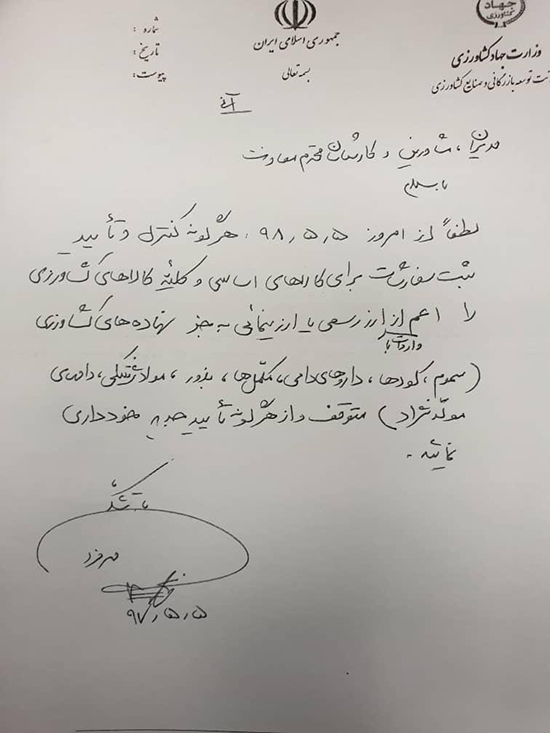 جهاد کشاورزی
جمهوری اسلامی ایران
وزارت جهاد کشاورزی
بسمه تعالی
نت توسعه بازرگانی و صنایع کشاورزی
شماره :
تاریخ :
پیوست :
آنی
مدیران، مشاورین و کارشناسان محترم معاونت
با سلام
لطفاً از امروز ۹۸٫۵٫۵، هرگونه کنترل و تأیید
ثبت سفارشات برای کالاهای اساسی و کلیه کالاهای کشاورزی
را اعم از ارز رسمی یا ارز نیمائی به جز نهاده‌های کشاورزی
واردات با
(سموم، کودها، داروهای دامی، مکمل‌ها، بذور، مواد ژنتیکی، دامهای
مولد نژاد) متوقف و از هرگونه تأیید جدید خودداری
نمائید.
با تشکر
مهرفرد
۹۷٫۵٫۵